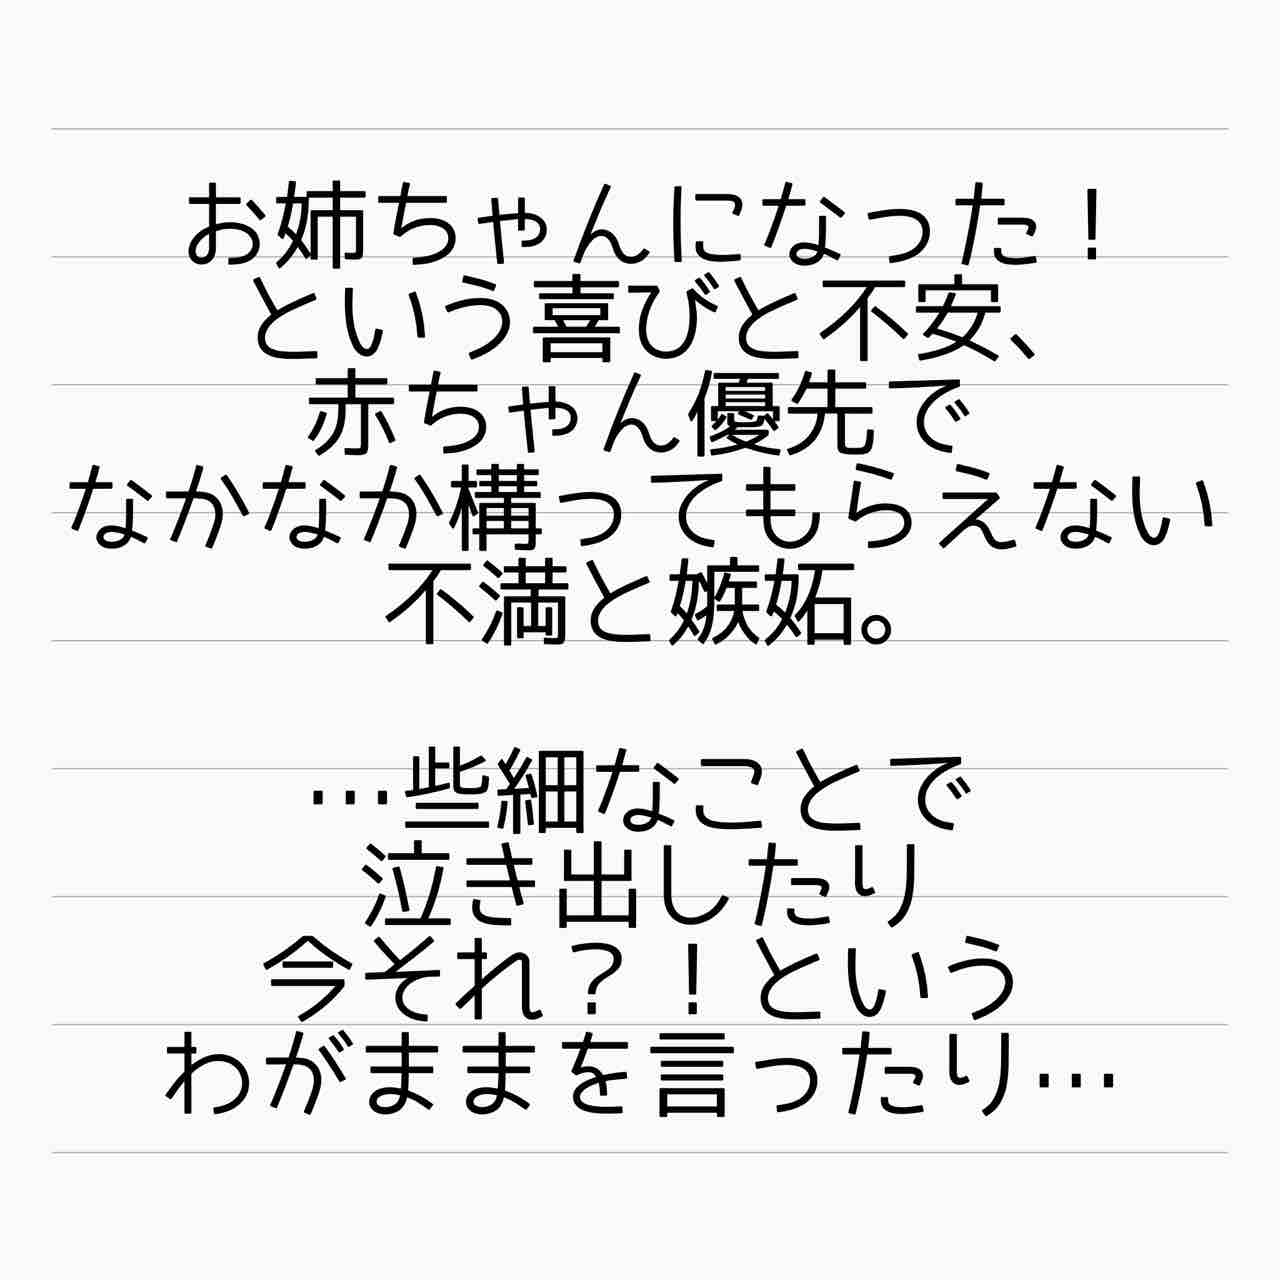 お姉ちゃんになった！
という喜びと不安、
赤ちゃん優先で
なかなか構ってもらえない
不満と嫉妬。
…些細なことで
泣き出したり
今それ？！という
わがままを言ったり…